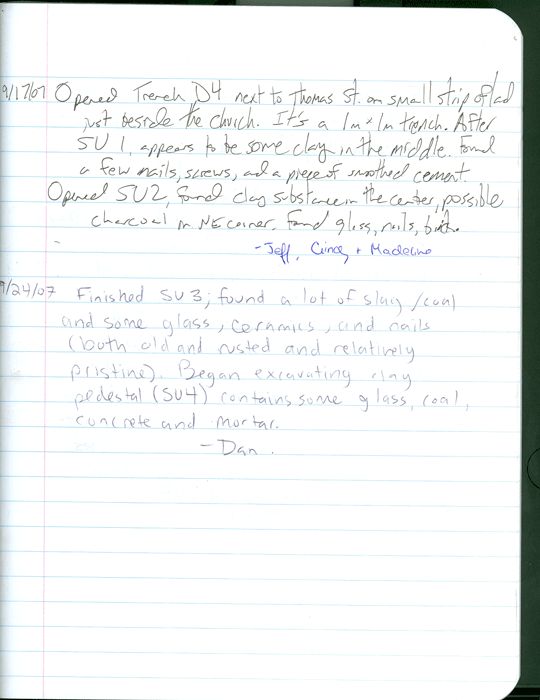 9/17/07 Opened Trench D4 next to Thomas St. on small strip of lad
just beside the church. It's a 1m x 1m trench. After
SU 1, appears to be some clay in the middle. Found
a few nails, screws, and a piece of smoothed cement.
Opened SU2, found clay substance in the center, possible
charcoal in NE corner. Found glass, nails, brick.
- Jeff, Cindy + Madeline
9/24/07 Finished SU 3; found a lot of slag/coal
and some glass, ceramics, and nails
(both old and rusted and relatively
pristine). Began excavating clay
pedestal (SU4) contains some glass, coal,
concrete and mortar.
- Dan.